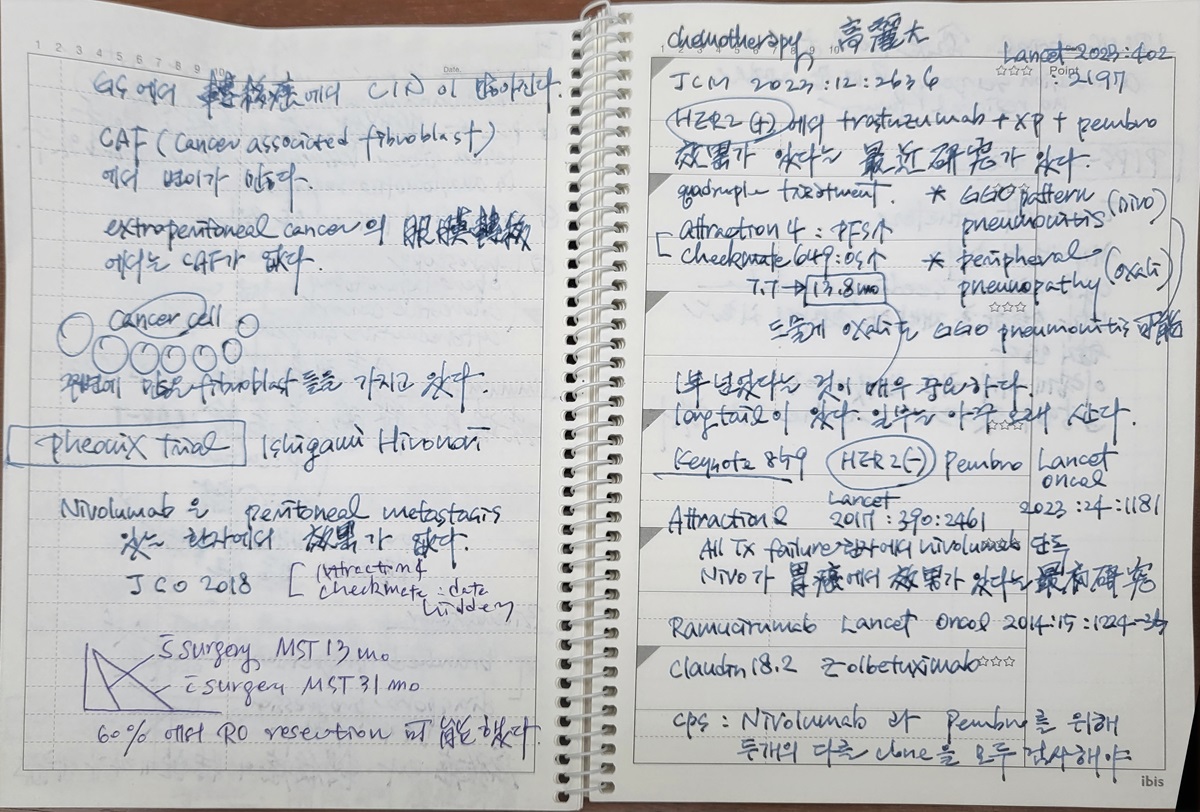 GS에서 轉移癌에서 CIN이 많아진다.
CAF (Cancer associated fibroblast)
에서 변이가 많다.
extraperitoneal cancer의 腹膜轉移
에서는 CAF가 없다.
Cancer cell
주변에 많은 fibroblast 들을 가지고 있다.
pheonix trial Ishigami Hironori
Nivolumab은 peritoneal metastasis
있는 환자에서 效果가 없다.
JCO 2018
Attraction 4
checkmate : data
hidden
s̄ surgery MST 13 mo
c̄ surgery MST 31 mo
60% 에서 R0 resection 可能했다.
chemotherapy, 高麗大
Lancet 2023:402
: 2197
Point
JCM 2023:12:2636
HER2(+)에서 trastuzumab + XP + pembro
效果가 있다는 最近研究가 있다.
quadruple treatment.
attraction 4 : PFS↑
checkmate 649 : OS↑
7.7 → 13.8 mo
* GGO pattern
pneumonitis (nivo)
* peripheral
pneuropathy (oxali)
드물게 oxali도 GGO pneumonitis 可能
1年 넘었다는 것이 매우 중요하다.
long tail이 있다. 일부는 아주 오래 산다.
Keynote 859 HER2(-) pembro Lancet
oncol
2023:24:1181
Attraction 2
Lancet
2017:390:2461
All Tx failure 환자에서 nivolumab 단독
Nivo가 胃癌에서 效果가 있다는 最初研究
Ramucirumab Lancet Oncol 2014:15:1224-35
Claudin 18.2 Zolbetuximab
cps : Nivolumab 과 pembro를 위해
두개의 다른 clone을 모두 검사해야
ibis